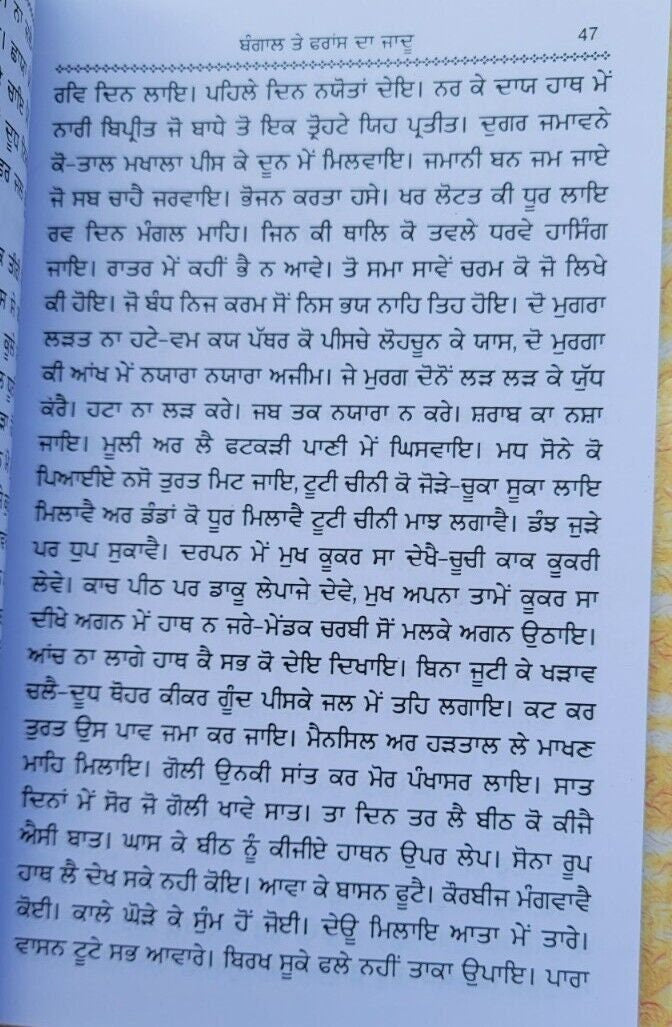 ਬੰਗਾਲ ਤੇ ਫਰਾਂਸ ਦਾ ਜਾਦੂ 47
ਰਵਿ ਦਿਨ ਲਾਇ। ਪਹਿਲੇ ਦਿਨ ਨਯੋਤਾਂ ਦੇਇ। ਨਰ ਕੇ ਦਾਯ ਹਾਥ ਮੇਂ
ਨਾਰੀ ਬਿਪ੍ਰੀਤ ਜੋ ਬਾਧੇ ਤੋ ਇਕ ਤ੍ਰੋਹਟੇ ਯਿਹ ਪ੍ਰਤੀਤ। ਦੁਗਰ ਜਮਾਵਨੇ
ਕੋ-ਤਾਲ ਮਖਾਲਾ ਪੀਸ ਕੇ ਦੂਨ ਮੇਂ ਮਿਲਵਾਇ। ਜਮਾਨੀ ਬਨ ਜਮ ਜਾਏ
ਜੋ ਸਬ ਚਾਹੈ ਜਰਵਾਇ। ਭੋਜਨ ਕਰਤਾ ਹਸੇ। ਖਰ ਲੋਟਤ ਕੀ ਧੂਰ ਲਾਇ
ਰਵ ਦਿਨ ਮੰਗਲ ਮਾਹਿ। ਜਿਨ ਕੀ ਥਾਲਿ ਕੋ ਤਵਲੇ ਧਰਵੇ ਹਾਸਿੰਗ
ਜਾਇ। ਰਾਤਰ ਮੇਂ ਕਹੀਂ ਭੈ ਨ ਆਵੇ। ਤੋ ਸਮਾ ਸਾਵੇਂ ਚਰਮ ਕੋ ਜੋ ਲਿਖੇ
ਕੀ ਹੋਇ। ਜੋ ਬੰਧ ਨਿਜ ਕਰਮ ਸੋਂ ਨਿਸ ਭਯ ਨਾਹਿ ਤਿਹ ਹੋਇ। ਦੋ ਮੁਗਰਾ
ਲੜਤ ਨਾ ਹਟੇ-ਵਮ ਕਯ ਪੱਥਰ ਕੋ ਪੀਸਚੇ ਲੋਹਚੂਨ ਕੇ ਯਾਸ, ਦੋ ਮੁਰਗਾ
ਕੀ ਆਂਖ ਮੇਂ ਨਯਾਰਾ ਨਯਾਰਾ ਅਜੀਮ। ਜੇ ਮੁਰਗ ਦੋਨੋਂ ਲੜ ਲੜ ਕੇ ਯੁੱਧ
ਕੰਰੈ। ਹਟਾ ਨਾ ਲੜ ਕਰੇ। ਜਬ ਤਕ ਨਯਾਰਾ ਨ ਕਰੇ। ਸ਼ਰਾਬ ਕਾ ਨਸ਼ਾ
ਜਾਇ। ਮੂਲੀ ਅਰ ਲੈ ਫਟਕੜੀ ਪਾਣੀ ਮੇਂ ਘਿਸਵਾਇ। ਮਧ ਸੋਨੇ ਕੋ
ਪਿਆਈਏ ਨਸੋ ਤੁਰਤ ਮਿਟ ਜਾਇ, ਟੂਟੀ ਚੀਨੀ ਕੋ ਜੋੜੇ-ਚੂਕਾ ਸੂਕਾ ਲਾਇ
ਮਿਲਾਵੈ ਅਰ ਡੰਡਾਂ ਕੋ ਧੂਰ ਮਿਲਾਵੈ ਟੂਟੀ ਚੀਨੀ ਮਾਝ ਲਗਾਵੈ। ਡੰਝ ਜੁੜੇ
ਪਰ ਧੁਪ ਸੁਕਾਵੈ। ਦਰਪਨ ਮੇਂ ਮੁਖ ਕੂਕਰ ਸਾ ਦੇਖੈ-ਚੂਚੀ ਕਾਕ ਕੂਕਰੀ
ਲੇਵੇ। ਕਾਚ ਪੀਠ ਪਰ ਡਾਕੂ ਲੇਪਾਜੇ ਦੇਵੇ, ਮੁਖ ਅਪਨਾ ਤਾਮੇਂ ਕੂਕਰ ਸਾ
ਦੀਖੇ ਅਗਨ ਮੇਂ ਹਾਥ ਨ ਜਰੇ-ਮੇਂਡਕ ਚਰਬੀ ਸੋਂ ਮਲਕੇ ਅਗਨ ਉਠਾਇ।
ਆਂਚ ਨਾ ਲਾਗੇ ਹਾਥ ਕੈ ਸਭ ਕੋ ਦੇਇ ਦਿਖਾਇ। ਬਿਨਾ ਜੂਟੀ ਕੇ ਖੜਾਵ
ਚਲੈ-ਦੂਧ ਥੋਹਰ ਕੀਕਰ ਗੂੰਦ ਪੀਸਕੇ ਜਲ ਮੇਂ ਤਹਿ ਲਗਾਇ। ਕਟ ਕਰ
ਤੁਰਤ ਉਸ ਪਾਵ ਜਮਾ ਕਰ ਜਾਇ। ਮੈਨਸਿਲ ਅਰ ਹੜਤਾਲ ਲੇ ਮਾਖਣ
ਮਾਹਿ ਮਿਲਾਇ। ਗੋਲੀ ਉਨਕੀ ਸਾਂਤ ਕਰ ਮੋਰ ਪੰਖਾਸਰ ਲਾਇ। ਸਾਤ
ਦਿਨਾਂ ਮੇਂ ਸੋਰ ਜੋ ਗੋਲੀ ਖਾਵੇ ਸਾਤ। ਤਾ ਦਿਨ ਤਰ ਲੈ ਬੀਠ ਕੋ ਕੀਜੈ
ਐਸੀ ਬਾਤ। ਘਾਸ ਕੇ ਬੀਠ ਨੂੰ ਕੀਜੀਏ ਹਾਥਨ ਉਪਰ ਲੇਪ। ਸੋਨਾ ਰੂਪ
ਹਾਥ ਲੈ ਦੇਖ ਸਕੇ ਨਹੀ ਕੋਇ। ਆਵਾ ਕੇ ਬਾਸਨ ਫੂਟੈ। ਕੌਰਬੀਜ ਮੰਗਵਾਵੈ
ਕੋਈ। ਕਾਲੇ ਘੋੜੇ ਕੇ ਸੁੰਮ ਹੋਂ ਜੋਈ। ਦੇਊ ਮਿਲਾਇ ਆਤਾ ਮੇਂ ਤਾਰੇ।
ਵਾਸਨ ਟੂਟੇ ਸਭ ਆਵਾਰੇ। ਬਿਰਖ ਸੂਕੇ ਫਲੇ ਨਹੀਂ ਤਾਕਾ ਉਪਾਇ। ਪਾਰਾ